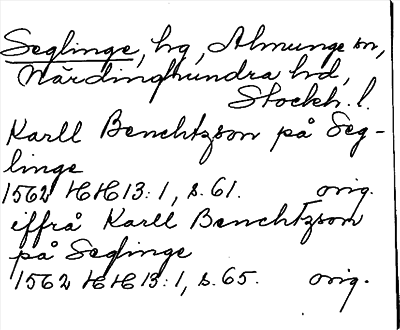 Seglinge, hg, Almunge sn,
Närdinghundra hd,
Stockh. l.
Karll Benchtzson på Seg-
linge
1562 HH 13:1, s. 61. orig.
iffrå Karll Benchtzsom
på Seglinge
1562 HH 13:1, s. 65. orig.